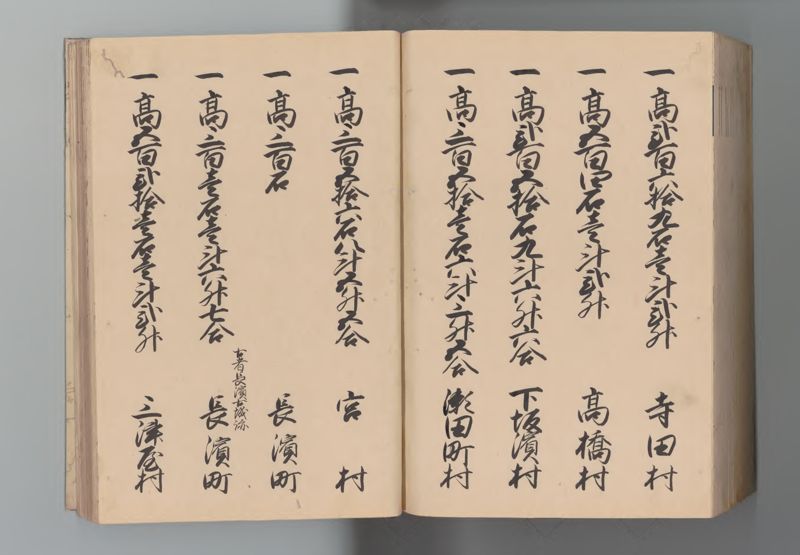 一高弐百六拾九石壱斗弐升 寺田村
一高五百四石壱斗弐升 高橋村
一高弐百五拾石九斗六升六合 下坂濱村
一高三百五拾壱石六斗三升五合 瀬田町村
一高三百五拾六石八斗五升五合 宮村
一高三百石 長濱町
古者長濱古城跡
一高三百壱石壱斗六升七合 長濱町
一高五百弐拾壱石壱斗弐升 三津屋村